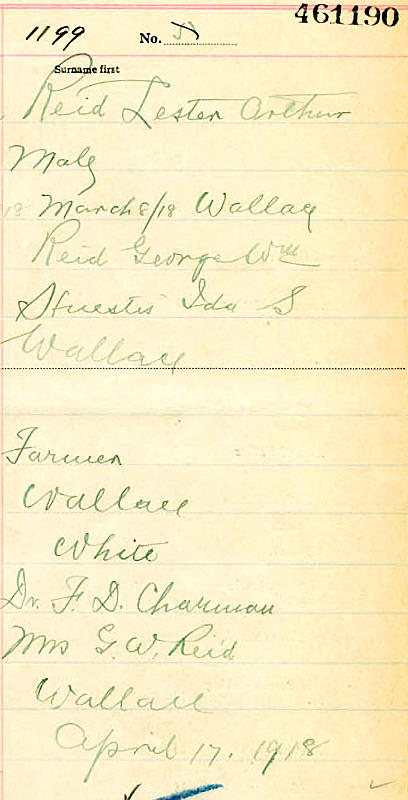 461190
1199 No. 5
Surname first
Reid Lester Arthur
Male
18 March 8/18 Wallace
Reid George Wm
Ida S
Wallace
Farmer
Wallace
White
Dr. F. D. Charman
Mrs G. W. Reid
Wallace
April 17. 1918